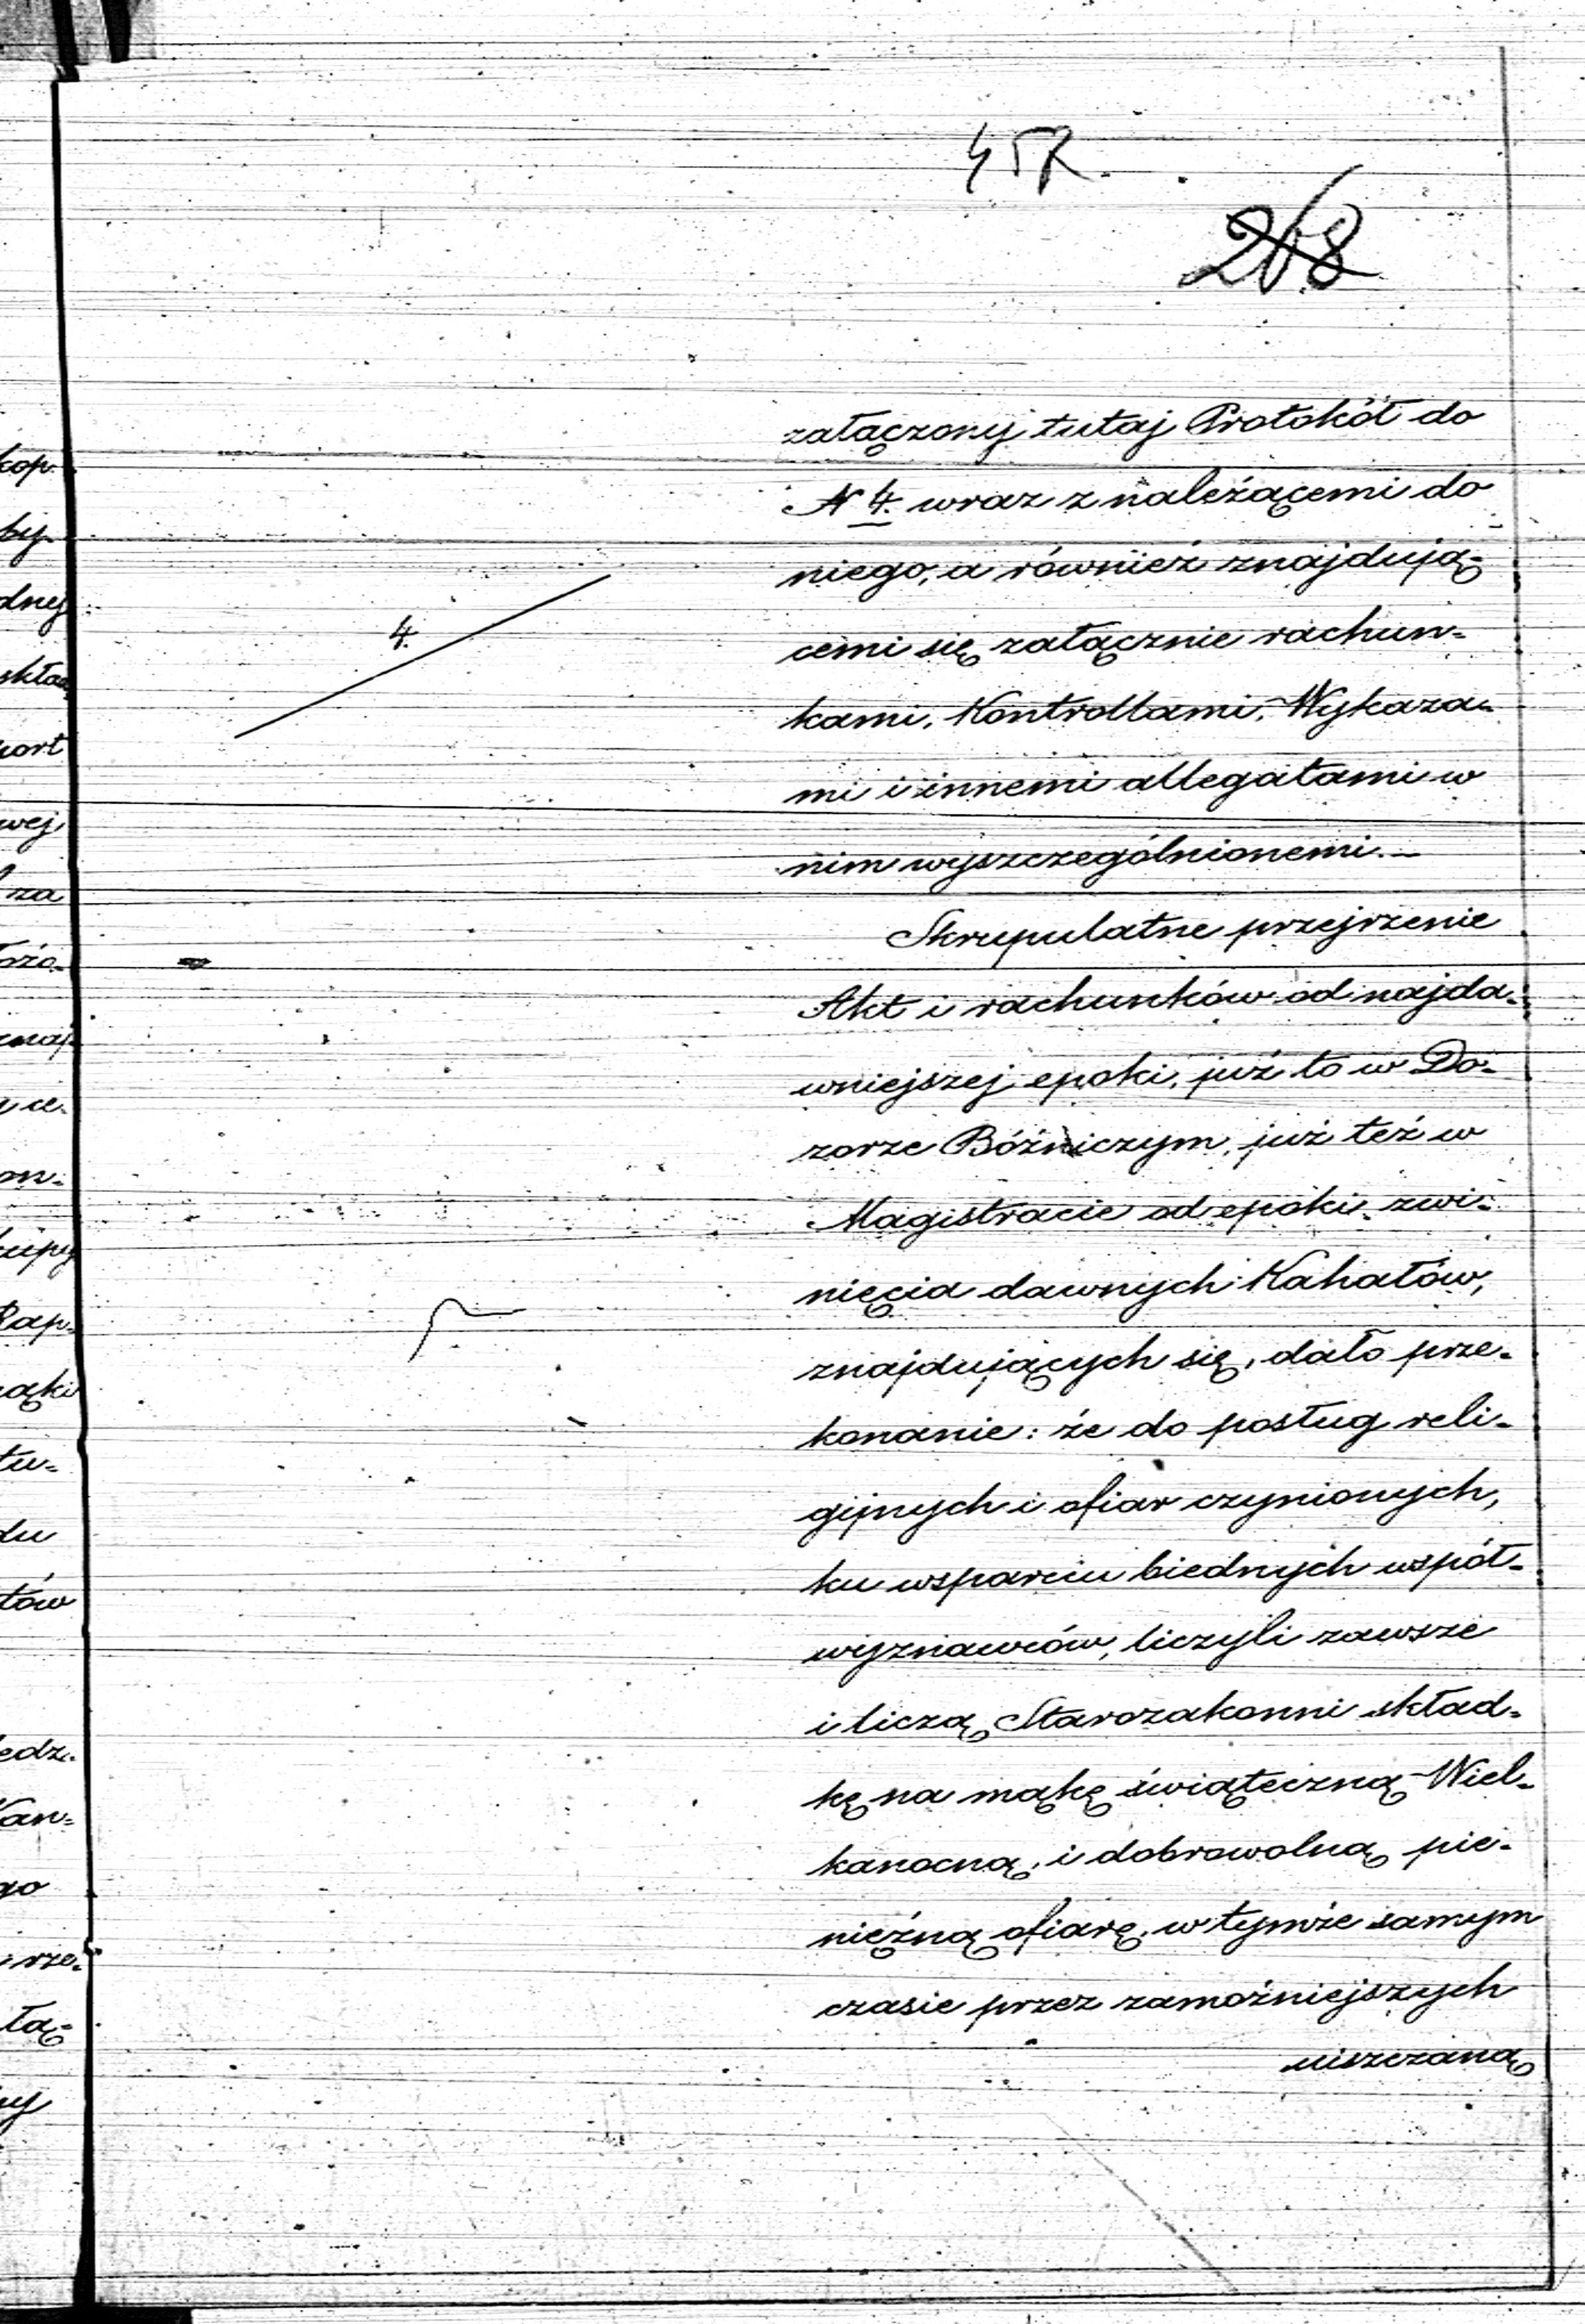 268
załączony tutaj Protokół do
N 4. wraz z należącemi do
niego, a również znajdują-
4.
cemi się załącznie rachun-
kami, Kontrollami, Wykaza-
mi i innemi allegatami w
nim wyszczególnionemi.—
Skrupulatne przejrzenie
Akt i rachunków od najda-
wniejszej epoki, już to w Do-
zorze Bóżniczym, już też w
Magistracie od epoki zwi-
nięcia dawnych Kahałów,
znajdujących się, dało prze-
konanie: że do posług reli-
gijnych i ofiar czynionych,
ku wsparciu biednych współ-
wyznawców, liczyli zawsze
i liczą Starozakonni skład-
kę na mąkę świąteczną Wiel-
kanocną, i dobrowolną pie-
nięźną ofiarę, w tymże samym
czasie przez zamożniejszych
uiszczaną